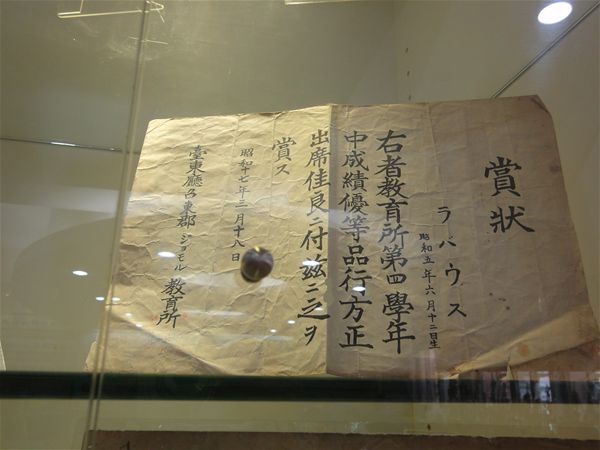 賞狀
ラバウス
昭和五年六月十二日生
右者教育所第四學年
中成績優等品行方正
出席佳良ニ付玆ニ之ヲ
賞ス
昭和十七年三月十八日
臺東廳台東郡ジヨモル教育所